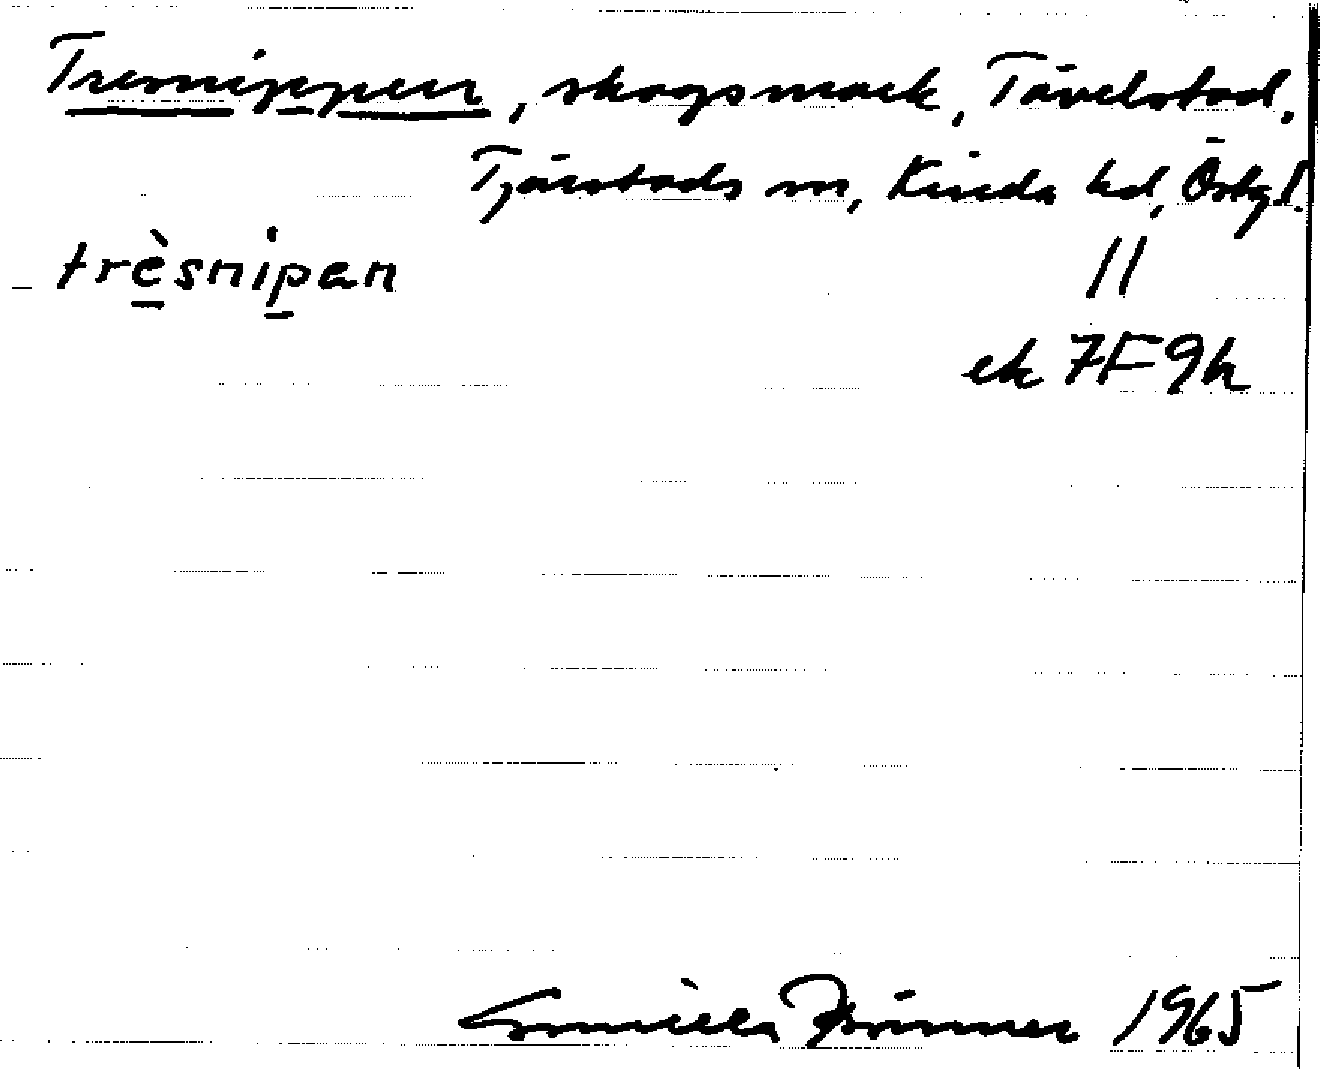 Tresnippen, skogsmark, Tävelstad,
Tjärstads sn, Kinda hd, Östgl.
trèsnipan 11
ek 7F9h
Gunilla Brönner 1965